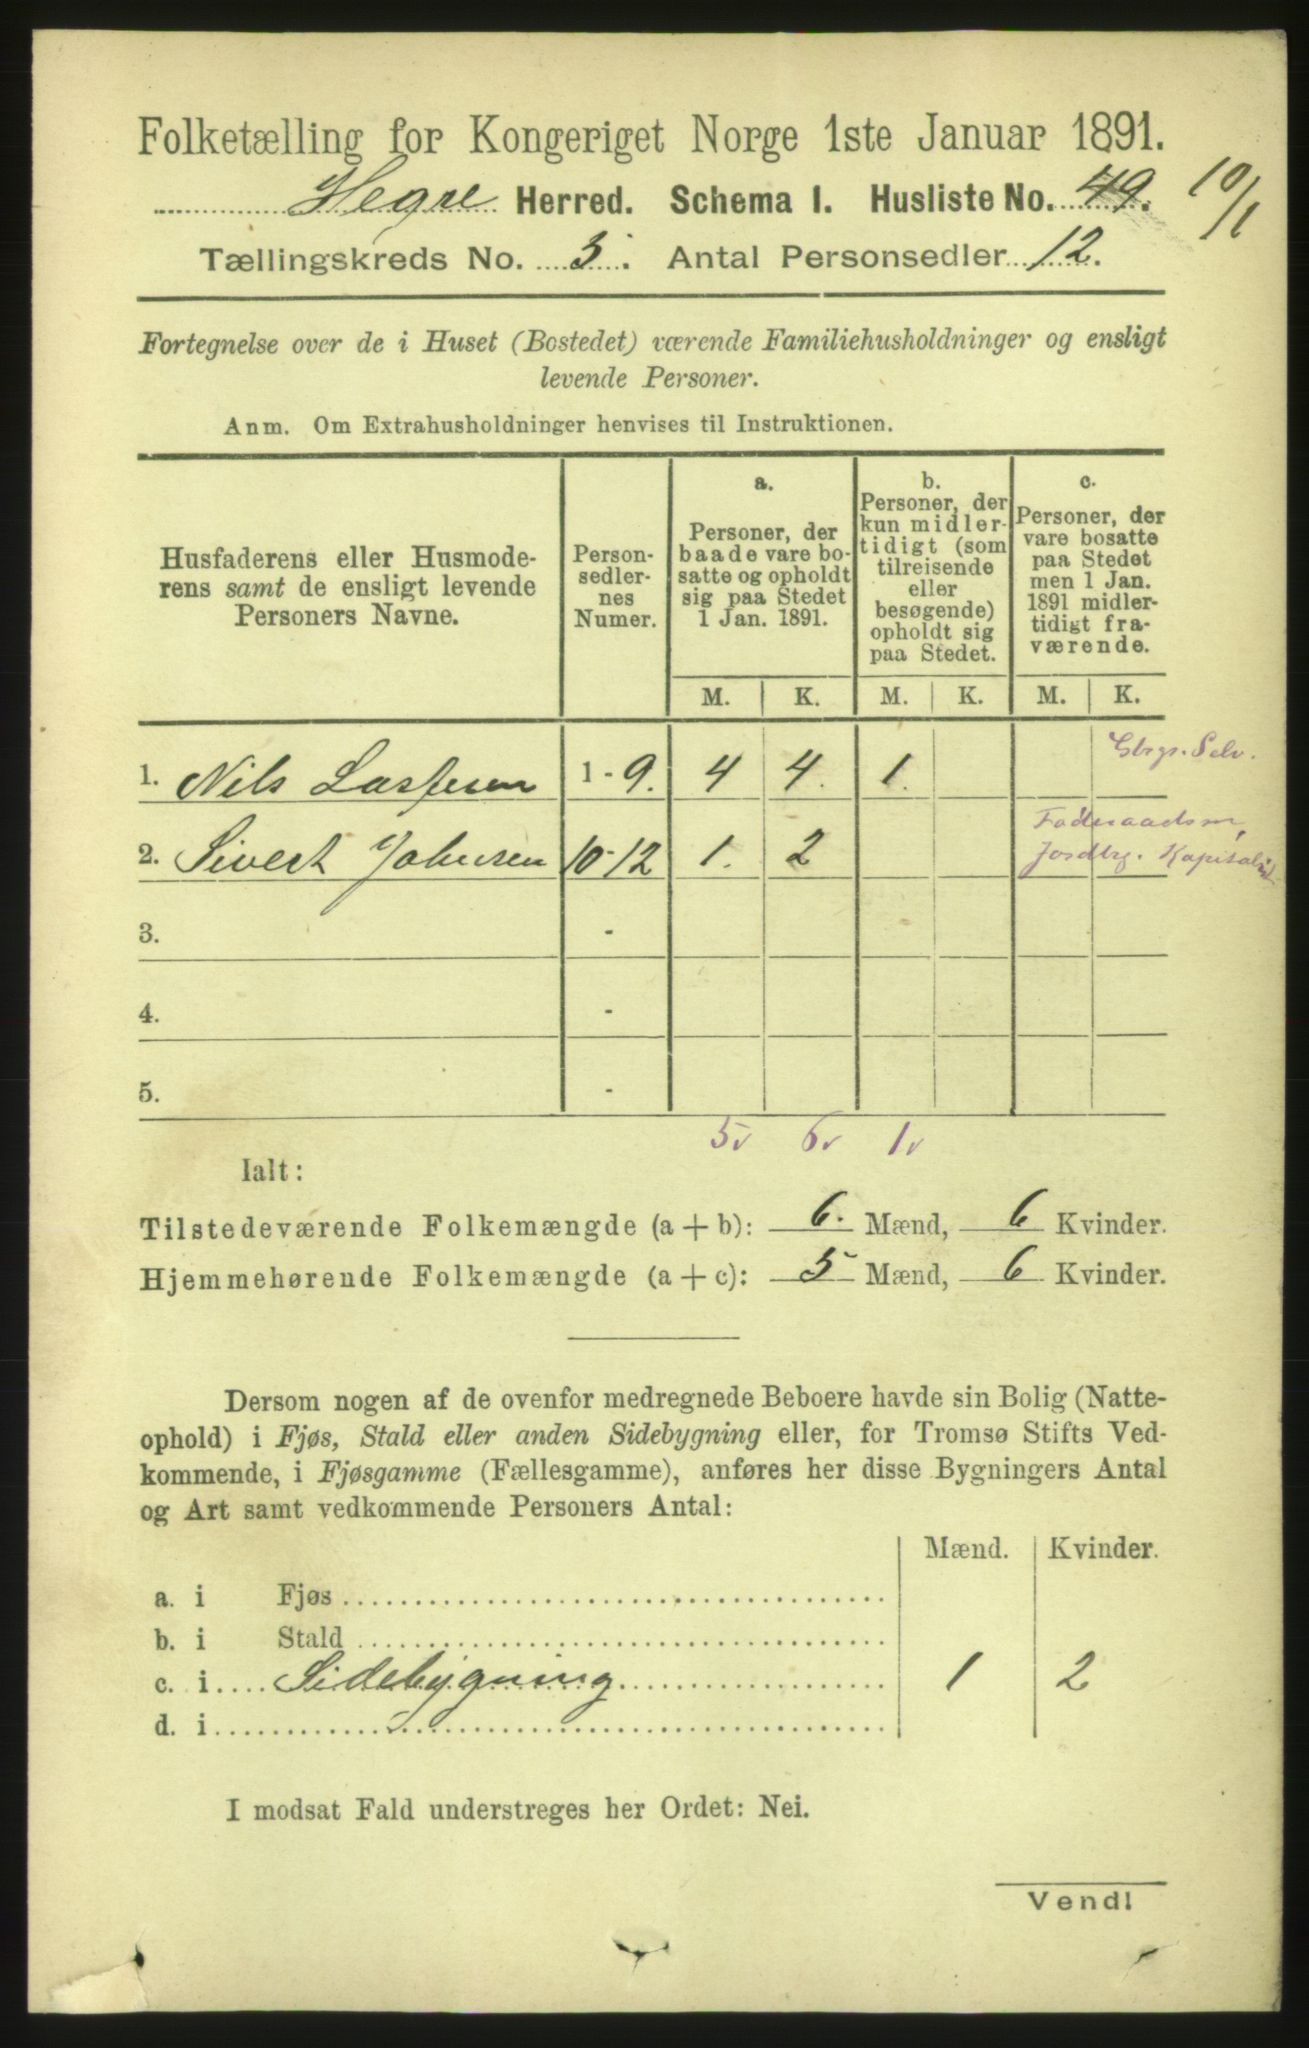 Folketælling for Kongeriget Norge 1ste Januar 1891.
Hegre Herred. Schema I. Husliste No. 49. 10/1
Tællingskreds No. 3. Antal Personsedler 12.
Fortegnelse over de i Huset (Bostedet) værende Familiehusholdninger og ensligt
levende Personer.
Anm. Om Extrahusholdninger henvises til Instruktionen.
Husfaderens eller Husmode-
rens samt de ensligt levende
Personers Navne.
Person-
sedler-
nes
Numer.
a.
Personer, der
baade vare bo-
satte og opholdt
sig paa Stedet
1 Jan. 1891.
b.
Personer, der
kun midler-
tidigt (som
tilreisende
eller
besøgende)
opholdt sig
paa Stedet.
c.
Personer, der
vare bosatte
paa Stedet
men 1 Jan.
1891 midler-
tidigt fra-
værende.
M. K. M. K. M. K.
Gbrgs. Selv.
1. Nils Lassesen 1-9. 4 4. 1.
Föderaadsm,
2. Sivert Johnsen 10-12 1. 2 Jordbg. Kapitalist
3. -
4. -
5. -
5v 6v 1v
Ialt:
Tilstedeværende Folkemængde (a + b): 6. Mænd, 6 Kvinder.
Hjemmehørende Folkemængde (a + c): 5 Mænd, 6 Kvinder.
Dersom nogen af de ovenfor medregnede Beboere havde sin Bolig (Natte-
ophold) i Fjøs, Stald eller anden Sidebygning eller, for Tromsø Stifts Ved-
kommende, i Fjøsgamme (Fællesgamme), anføres her disse Bygningers Antal
og Art samt vedkommende Personers Antal:
Mænd. Kvinder.
a. i Fjøs
b. i Stald
c. i Sidebygning 1 2
d. i
I modsat Fald understreges her Ordet: Nei.
Vend!